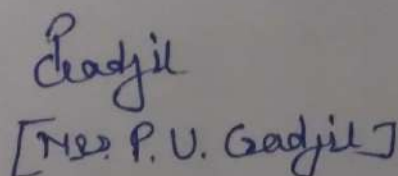 Gadgil
[Mrs. P. U. Gadgil]